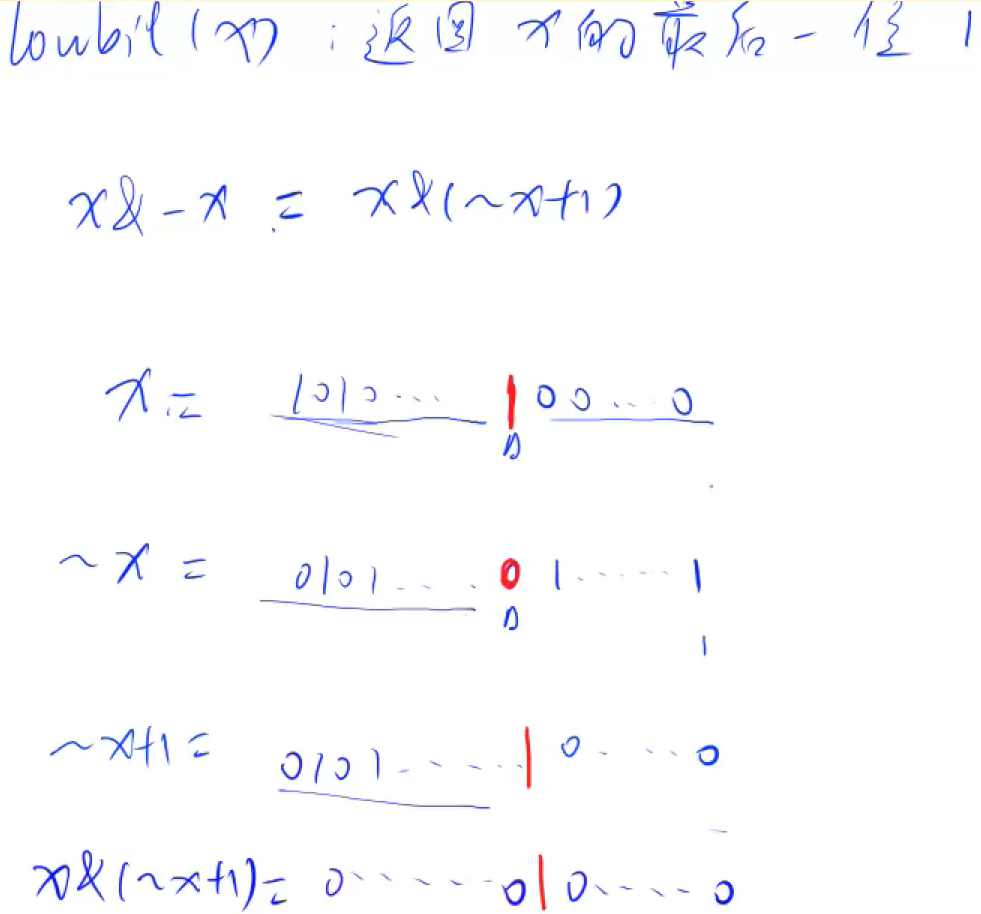 lowbit(x) : 返回 x 的最后一位 1
x&-x = x&(~x+1)
x = 1010... 1 00...0
~x = 0101.... 0 1......1
1
~x+1 = 0101......1 0.....0
x&(~x+1) = 0......0 1 0.....0